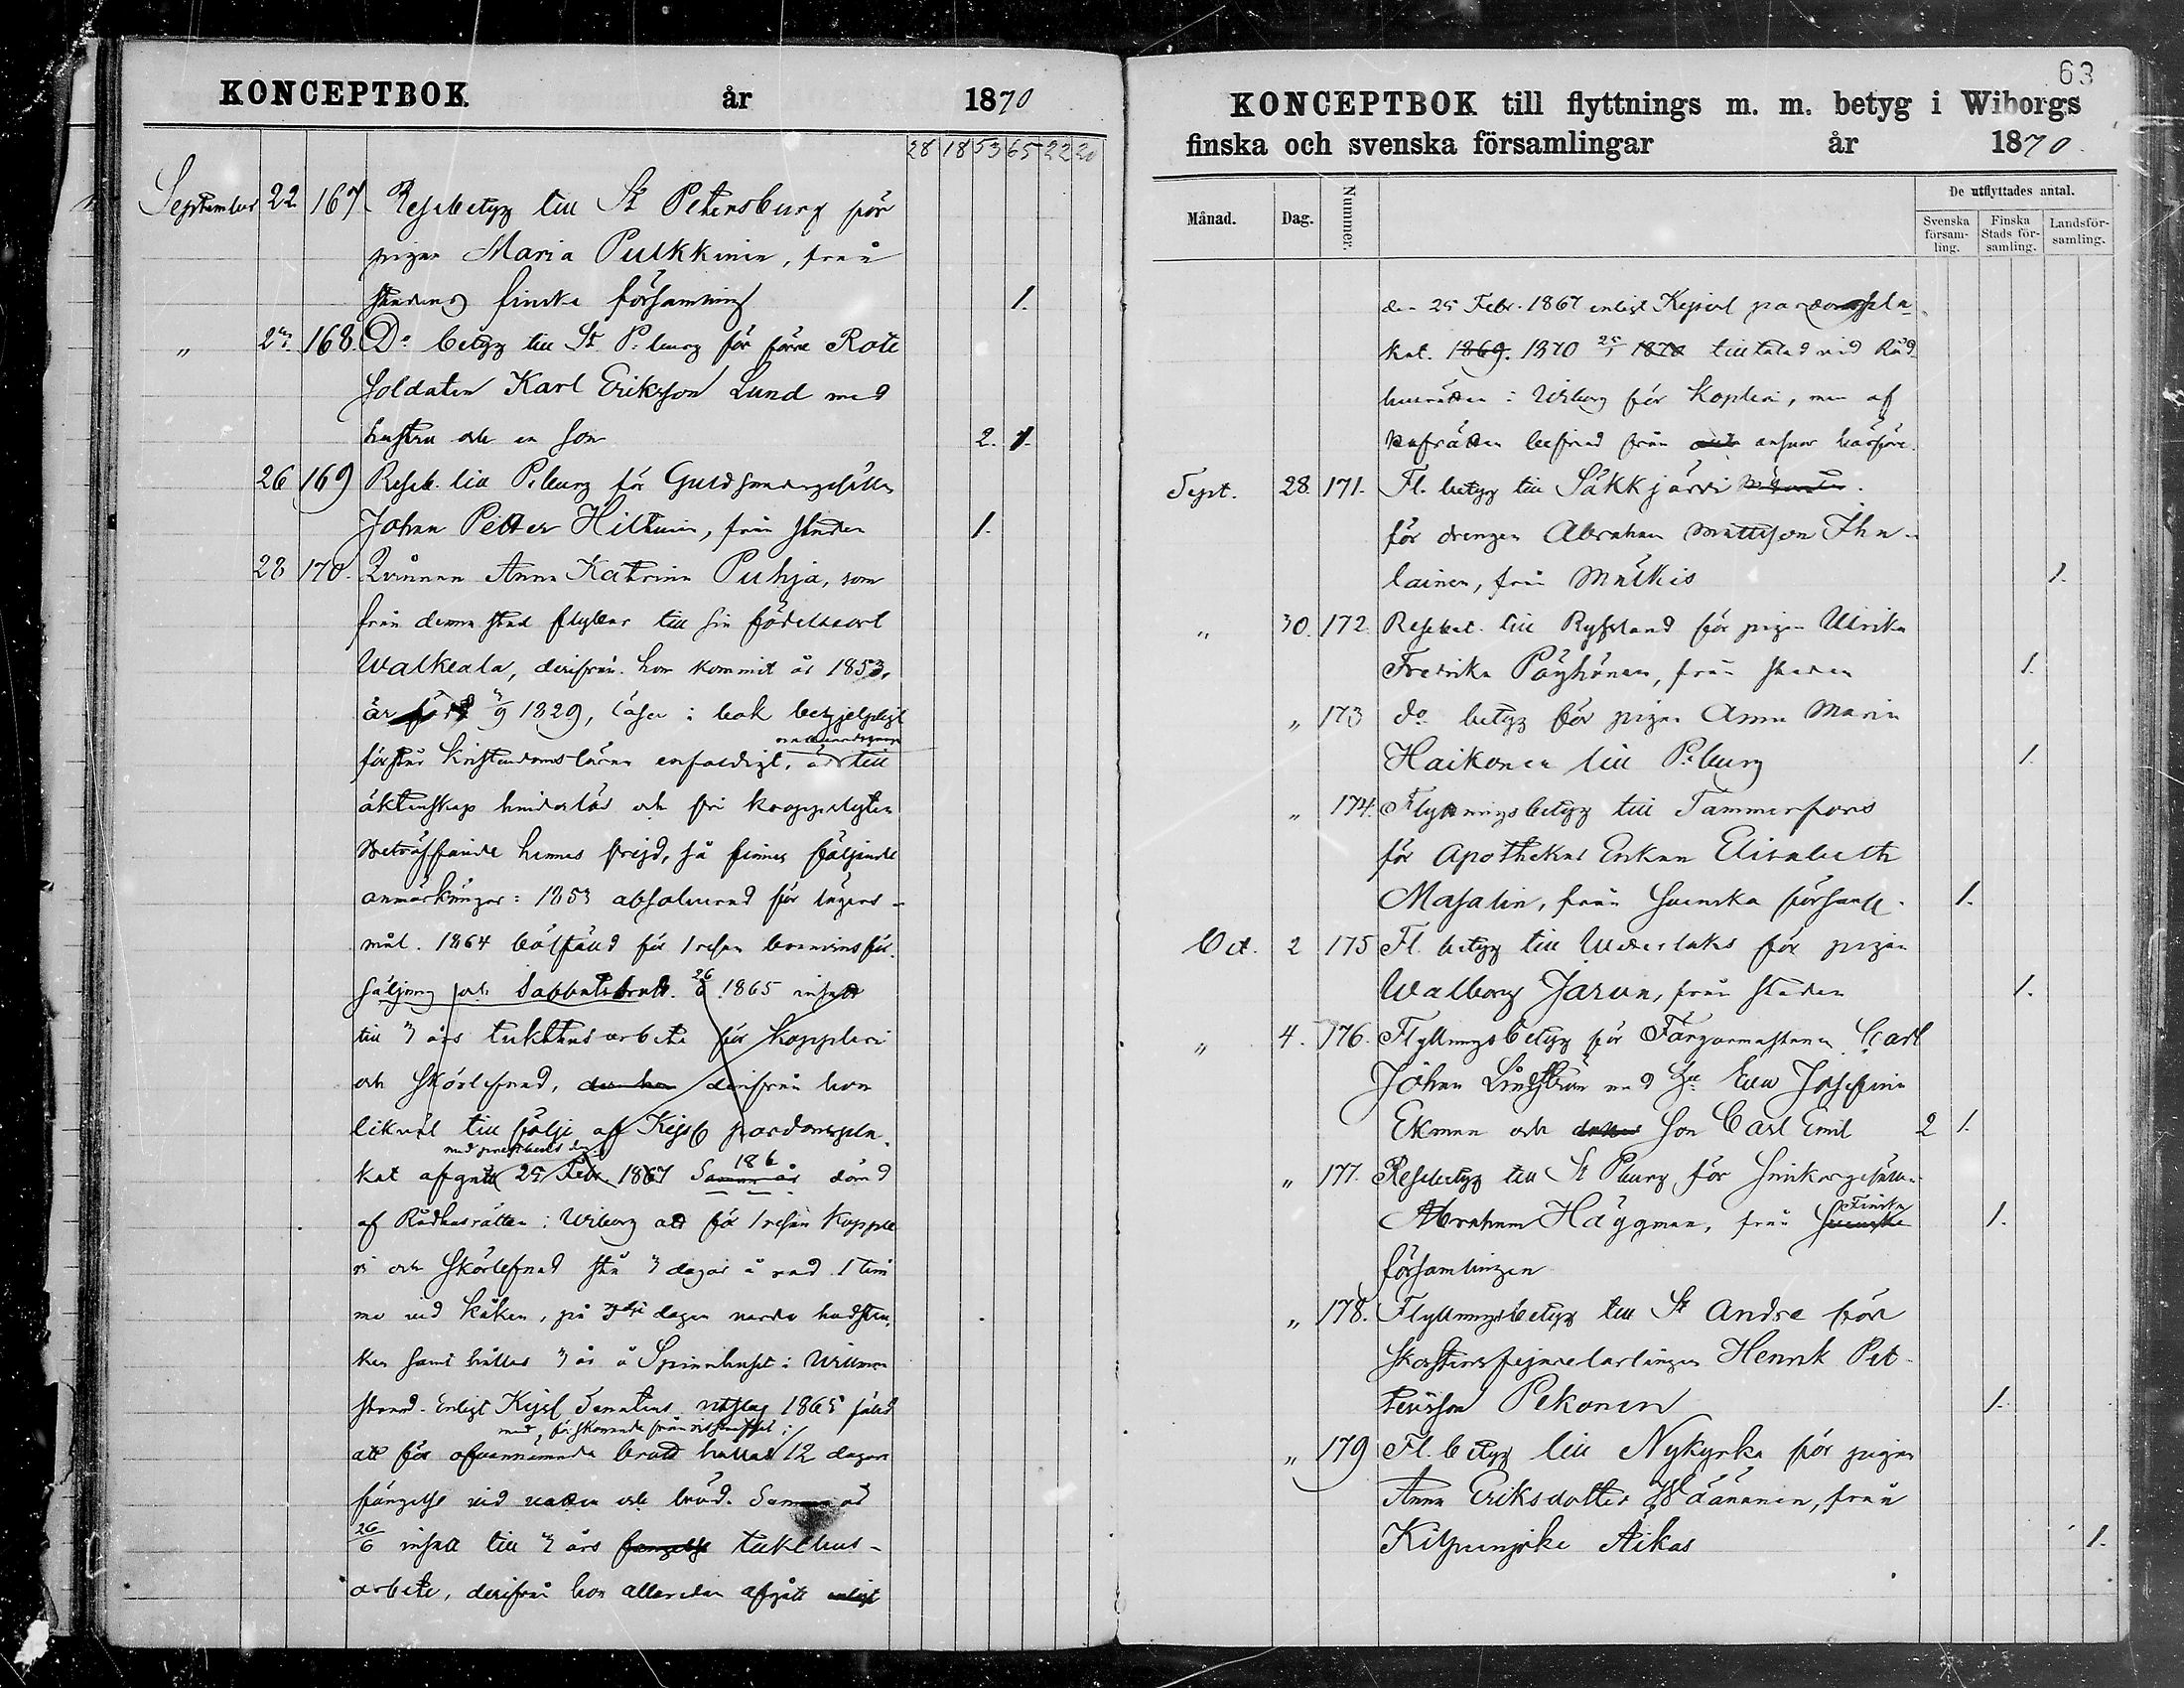 KONCEPTBOK år 1870
28 18 53 65 22 20
September 22 167. Resebetyg till St Petersburg för
pigan Maria Pulkkinen, från
stadens finska församling 1.
" 23. 168. Do betyg till St P:burg för förre Rote
Soldaten Karl Eriksson Lund med
hustru och en son 2. 1.
26 169 Reseb. till P:burg för Guldsmedsgesällen
Johan Petter Hiltunen, från staden 1.
28 170. Qvinnan Anna Katrina Puhja, som
från denna stad flyttar till sin födelseort
Walkeala, derifrån hon kommit år 1853,
är född 3/9 1829, läser i bok behjelpligt
förstår Kristendomsläran enfaldigt, är till
äktenskap hinderlös och fri kroppslyten
Beträffande hennes frejd, så finnes följande
anmärkningar: 1853 absolverad för lägers-
mål. 1864 bötfälld för 1 resan bränvinsför-
säljning och Sabbatsbrott. 26/6 1865 insatt
till 3 års tukthusarbete för Koppleri
och Skörlefnad, derifrån hon
likväl till följe af Kejsl pardonspla-
kat afgått 25 Febr. 1867 Samma år 186 dömd
af Rådhusrätten i Wiborg att för 1 resan Kopple
ri och Skörlefnad stå 3 dagar å rad 1 tim
me vid kåken, på 3dje dagen hudstry-
kas samt hållas 3 år å Spinnhuset i Willman
strand. Enligt Kejsl Senatens utslag 1865 fälld
med, förskonande från
att för ofvannämnda brott hållas 12 dagars
fängelse vid vatten och bröd. Samma år
26/6 insatt till 3 års fängelse tukthus-
arbete, derifrån hon allaredan afgått enligt
63
KONCEPTBOK till flyttnings m. m. betyg i Wiborgs
finska och svenska församlingar år 1870.
Månad. Dag. Nummer. De utflyttades antal.
Svenska församling. Finska Stads församling. Landsförsamling.
den 25 Febr. 1867 enligt Kejserl pardonspla-
kat. 1869. 1870 25/1 1870 tilltalad vid Råd
husrätten i Wiborg för Koppleri, men af
Hofrätten befriad från ansvar härföre.
Sept. 28. 171. Fl. betyg till Säkkjärvi
för drengen Abraham Mattsson Iha-
lainen, från Mälkis 1.
" 30. 172. Resebet. till Ryssland för pigan Ulrika
Fredrika Pöyhönen, från staden 1.
" 173 do betyg för pigan Anna Maria
Haikonen till P:burg 1.
" 174. Flyttningsbetyg till Tammerfors
för Apothekar Enkan Elisabeth
Masalin, från Svenska förs. 1.
Oct. 2 175 Fl. betyg till Wederlaks för pigan
Walborg Jarva, från staden 1.
" 4. 176. Flyttningsbetyg för Färgaremästaren Carl
Johan Lindström med Hu Eva Josefina
Ekman och dotter Son Carl Emil 2 1.
" 177. Resebetyg till St P:burg för Snickargesällen
Abraham Häggman, från Svenska Finska 1.
församlingen
" 178. Flyttningsbetyg till St Andre för
Skorstensfejarelärlingen Henrik Pet-
tersson Pekonen 1.
" 179 Fl. betyg till Nykyrka för pigan
Anna Eriksdotter Wäänänen, från
Kilpeenjoki Aikas 1.